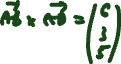 $\vec{AB} \times \vec{AB} = \begin{pmatrix} 6 \\ 3 \\ 5 \end{pmatrix}$